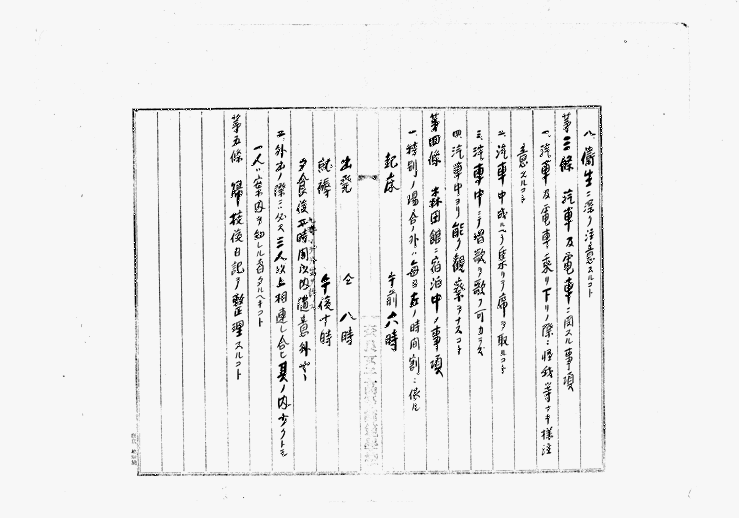 八、衛生ニ深ク注意スルコト
第三條 汽車及電車ニ関スル事項
一、汽車及電車乗リ下リノ際ニ怪我等ナキ様注
意スルコト
二、汽車中成ルヘク集リテ席ヲ取ルコト
三、汽車中ニテ唱歌ヲ歌フ可カラズ
四、汽車中ヨリ能ク観察ヲナスコト
第四條 森田館ニ宿泊中ノ事項
一、特別ノ場合ノ外ハ毎日左ノ時間割ニ依ル
起床 午前六時
出発 仝八時
就褥 午後十時
夕食後 時間以内随意外出
二、外出ノ際ニハ必ス三人以上相連レ合ヒ其ノ内少クトモ
一人ハ案内ヲ知レル者タルヘキコト
第五條 帰校後日記ヲ整理スルコト